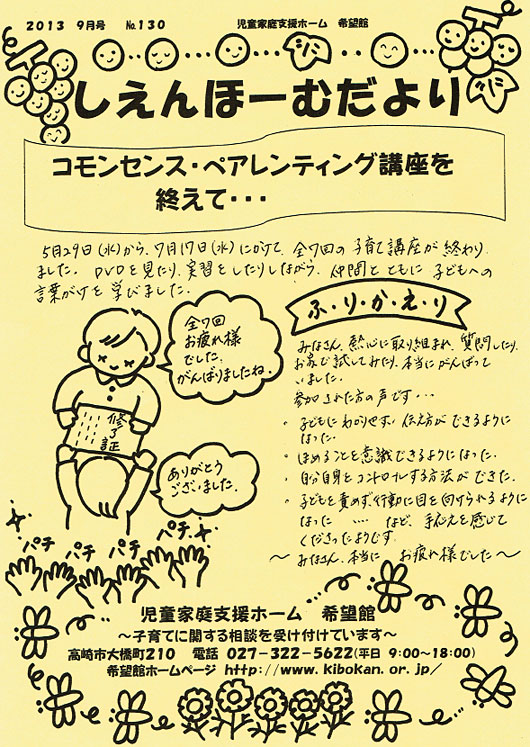 2013 9月号 No.130 児童家庭支援ホーム 希望館
しえんほーむだより
コモンセンス・ペアレンティング講座を
終えて・・・
5月29日(水)から、7月17日(水)にかけて、全7回の子育て講座が終わり
ました。DVDを見たり、実習をしたりしながら、仲間とともに子どもへの
言葉がけを学びました。
全7回
お疲れ様
でした。
がんばりましたね。
修了証
ありがとう
ございました。
パチ パチ パチ パチ
ふ・り・か・え・り
みなさん、熱心に取り組まれ、質問したり、
お家で試してみたり、本当にがんばって
いました。
参加された方の声です・・・
・子どもにわかりやすい伝え方ができるように
なった。
・ほめることを意識できるようになった。
・自分自身をコントロールする方法ができた。
・子どもを責めず、行動に目を向けられるように
なった …… など、手応えを感じて
くださったようです。
〜みなさん、本当に お疲れ様でした〜
児童家庭支援ホーム 希望館
〜子育てに関する相談を受け付けています〜
高崎市大橋町210 電話 027-322-5622(平日 9:00〜18:00)
希望館ホームページ http://www.kibokan.or.jp/